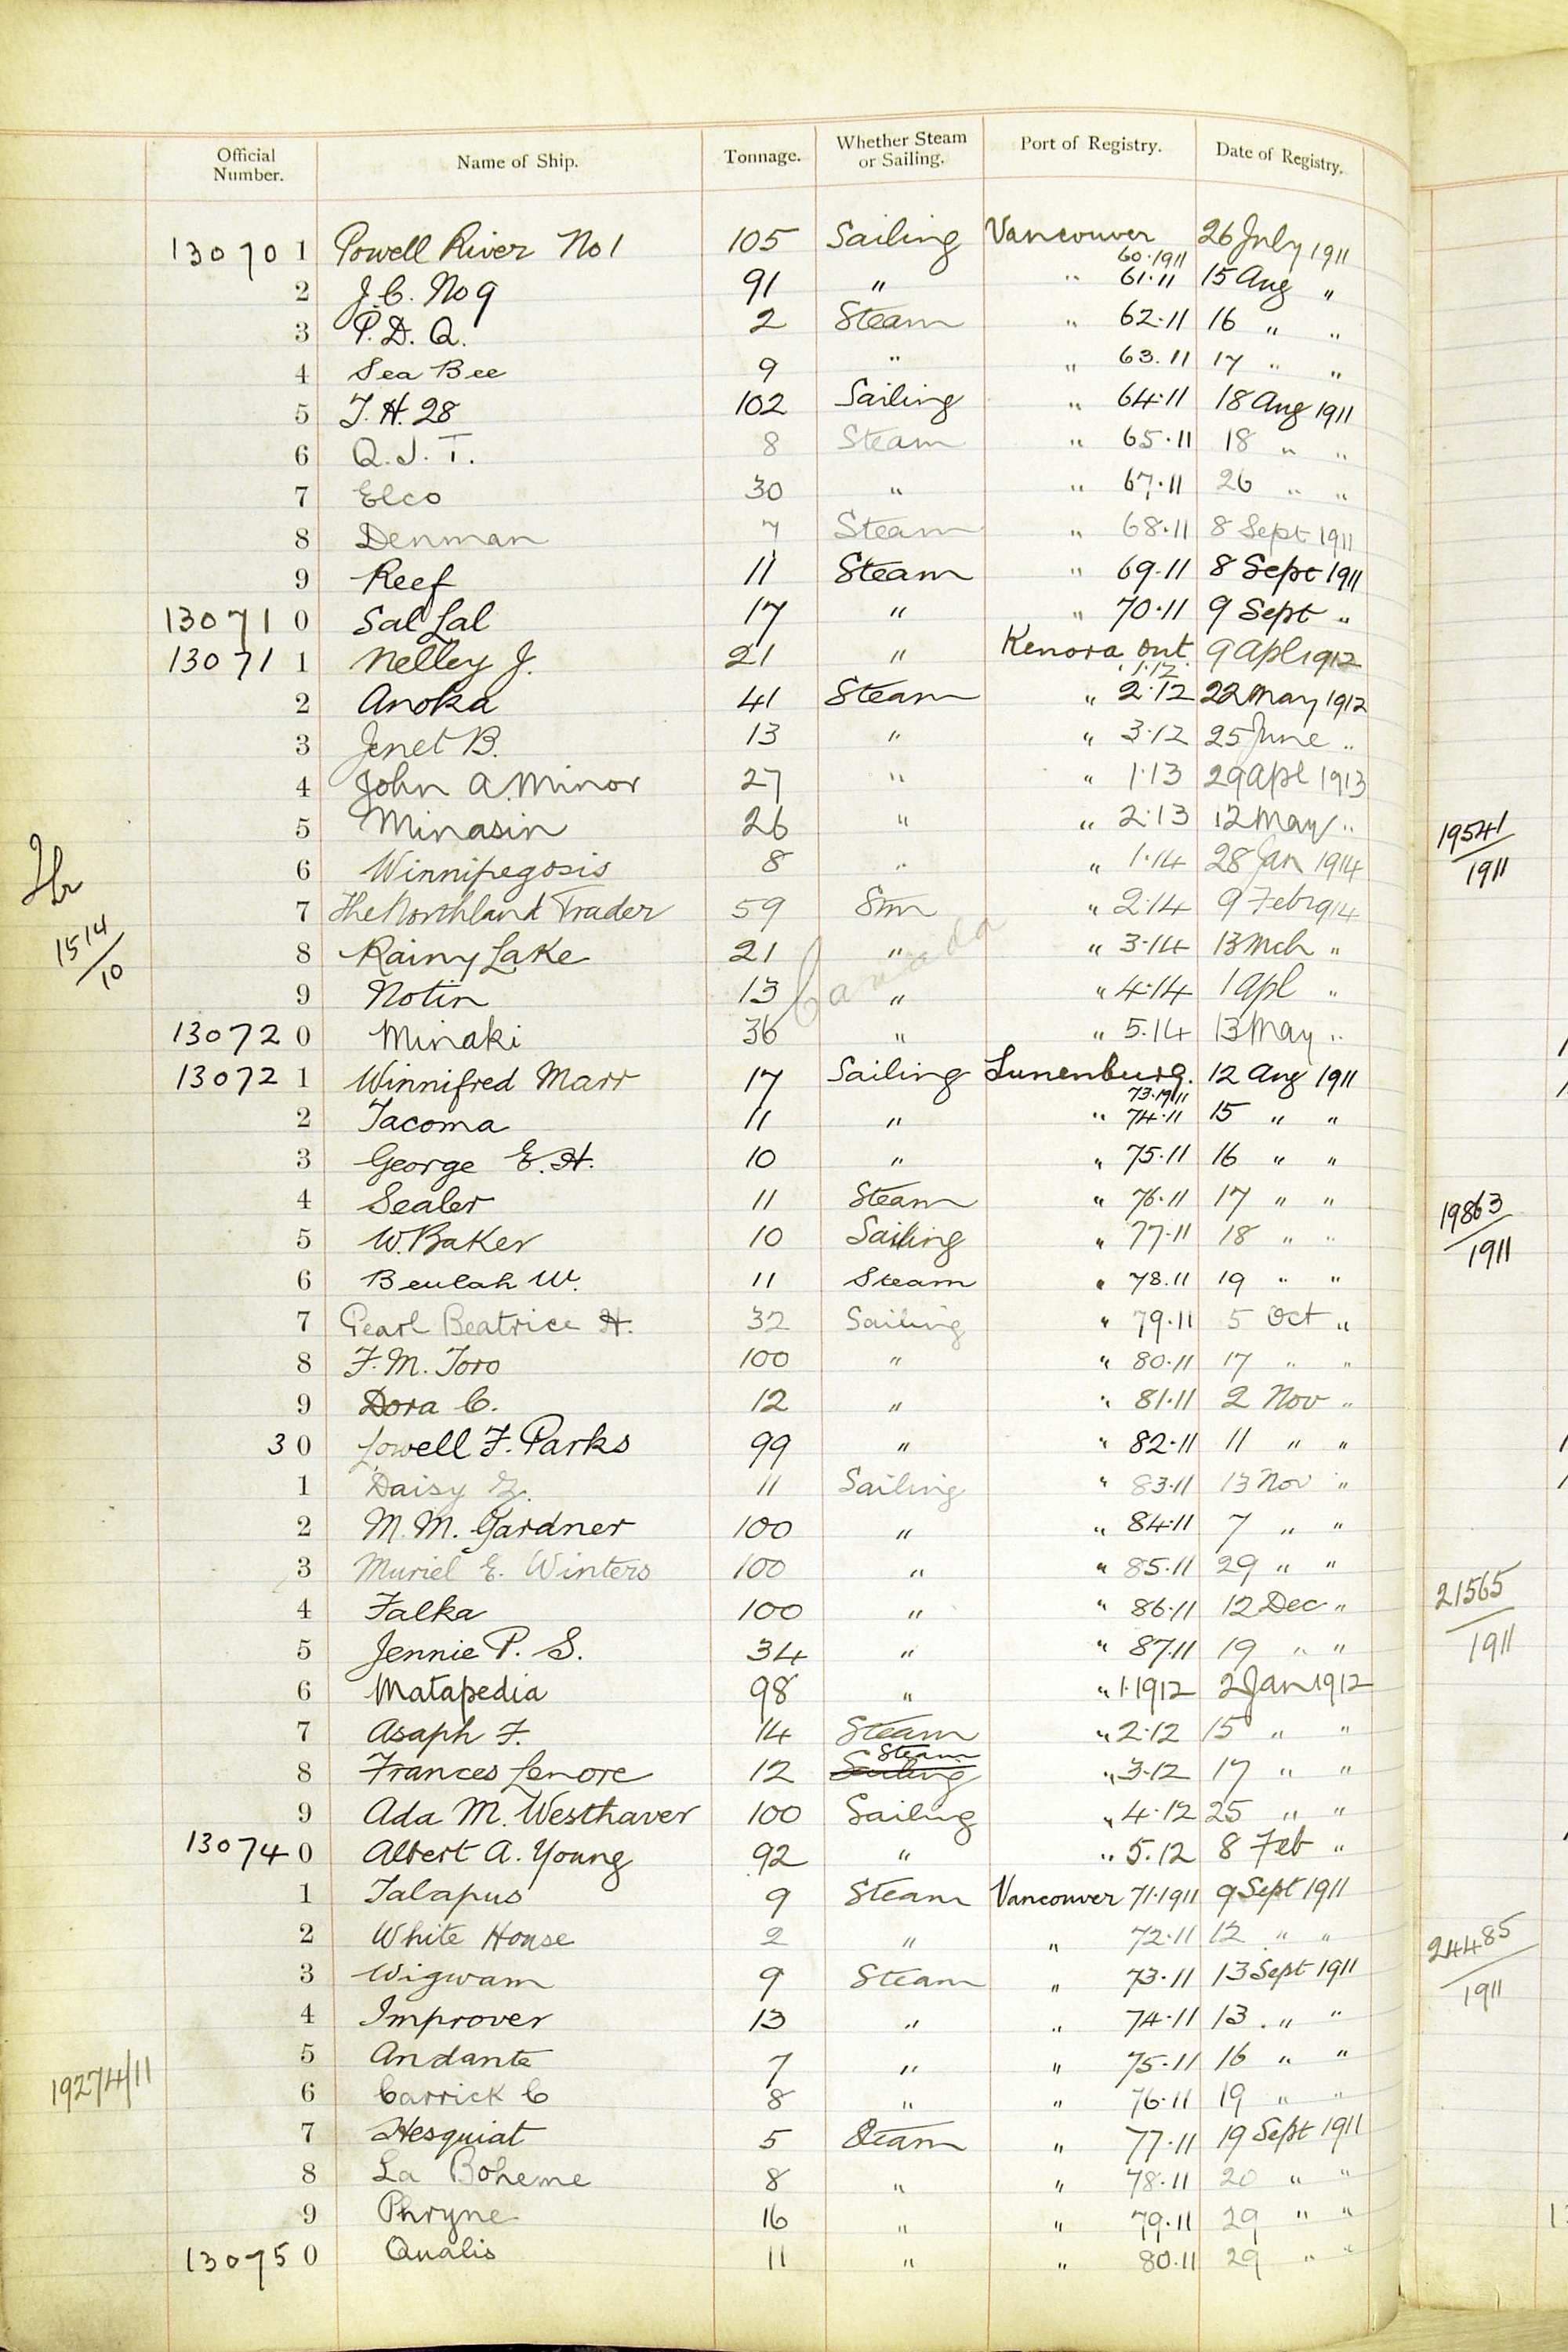 Official Number. Name of Ship. Tonnage. Whether Steam or Sailing. Port of Registry. Date of Registry.
130701 Powell River No 1 105 Sailing Vancouver 60·1911 26 July 1911
2 J.C. No 9 91 " " 61·11 15 Aug "
3 P.D.Q. 2 Steam " 62·11 16 " "
4 Sea Bee 9 " " 63.11 17 " "
5 T.H. 28 102 Sailing " 64·11 18 Aug 1911
6 Q.J.T. 8 Steam " 65·11 18 " "
7 Elco 30 " " 67·11 26 " "
8 Denman 7 Steam " 68·11 8 Sept 1911
9 Reef 11 Steam " 69·11 8 Sept 1911
130710 Sal Lal 17 " " 70·11 9 Sept "
130711 Nelley J. 21 " Kenora Ont 1·12 9 Apl 1912
2 Anoka 41 Steam " 2·12 22 May 1912
3 Jenet B. 13 " " 3·12 25 June "
4 John A. Minor 27 " " 1·13 29 Apl 1913
5 Minasin 26 " " 2·13 12 May "
6 Winnipegosis 8 " " 1·14 28 Jan 1914
7 The Northland Trader 59 Stm " 2·14 9 Feb 1914
8 Rainy Lake 21 " " 3·14 13 Mch "
9 Notin 13 " " 4·14 1 Apl "
Canada
130720 Minaki 36 " " 5·14 13 May "
130721 Winnifred Marr 17 Sailing Lunenburg. 73·1911 12 Aug 1911
2 Tacoma 11 " " 74·11 15 " "
3 George E.H. 10 " " 75·11 16 " "
4 Sealer 11 Steam " 76·11 17 " "
5 W. Baker 10 Sailing " 77·11 18 " "
6 Beulah W. 11 Steam " 78.11 19 " "
7 Pearl Beatrice H. 32 Sailing " 79.11 5 Oct "
8 F.M. Toro 100 " " 80·11 17 " "
9 Dora C. 12 " " 81·11 2 Nov "
30 Lowell F. Parks 99 " " 82·11 11 " "
1 Daisy Z. 11 Sailing " 83·11 13 Nov "
2 M.M. Gardner 100 " " 84·11 7 " "
3 Muriel E. Winters 100 " " 85·11 29 " "
4 Falka 100 " " 86·11 12 Dec "
5 Jennie P. S. 34 " " 87·11 19 " "
6 Matapedia 98 " " 1·1912 2 Jan 1912
7 Asaph F. 14 Steam " 2·12 15 " "
8 Frances Lenore 12 Sailing Steam " 3·12 17 " "
9 Ada M. Westhaver 100 Sailing " 4·12 25 " "
130740 Albert A. Young 92 " " 5.12 8 Feb "
1 Talapus 9 Steam Vancouver 71·1911 9 Sept 1911
2 White House 2 " " 72·11 12 " "
3 Wigwam 9 Steam " 73·11 13 Sept 1911
4 Improver 13 " " 74·11 13 " "
5 Andante 7 " " 75·11 16 " "
6 Carrick C 8 " " 76·11 19 " "
7 Hesquiat 5 Steam " 77·11 19 Sept 1911
8 La Boheme 8 " " 78·11 20 " "
9 Phryne 16 " " 79·11 29 " "
130750 Qualis 11 " " 80·11 29 " "
1514/10
19274/11
19541/1911
19863/1911
21565/1911
24485/1911